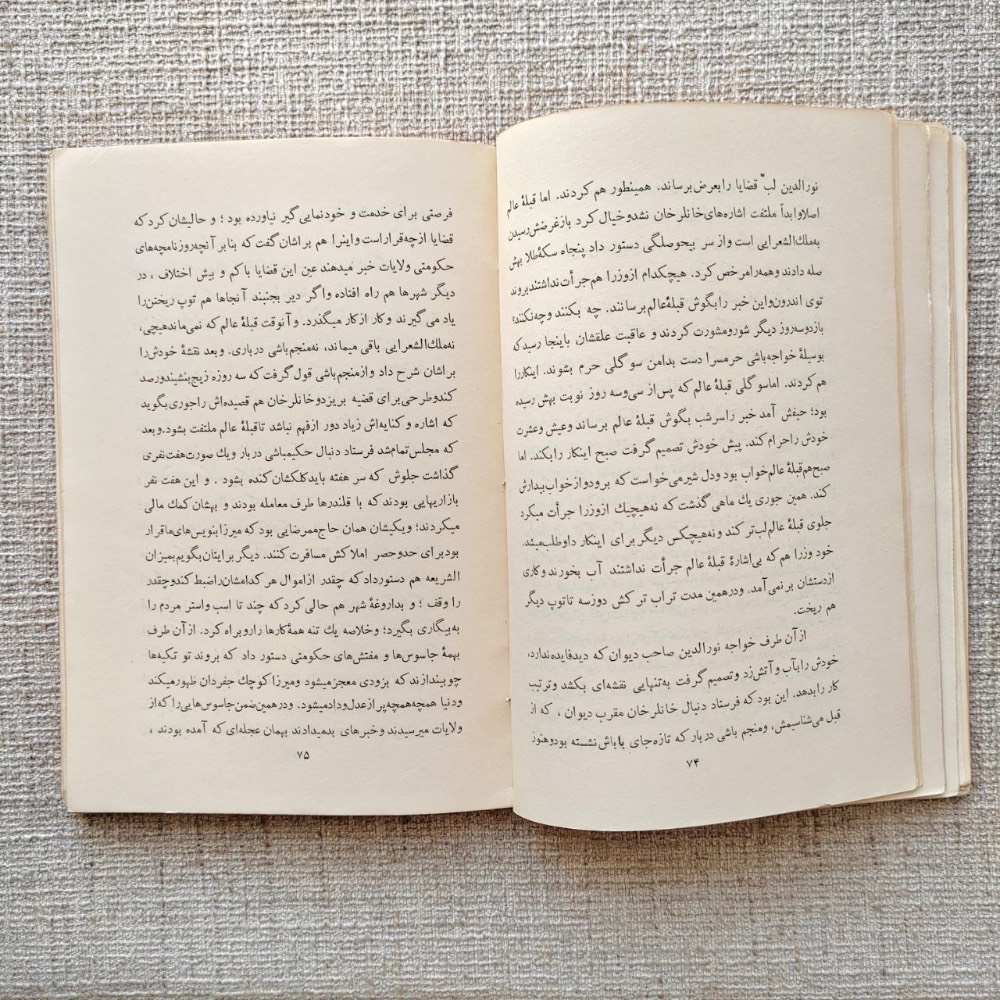 نورالدین لبّ قضایا را بعرض برساند. همینطور هم کردند. اما قبلهٔ عالم
اصلا وابداً ملتفت اشاره‌های خانلرخان نشد و خیال کرد باز غرضش رسیدن
به‌ملك‌الشعرایی است و از سر بیحوصلگی دستور داد پنجاه سکهٔ طلا بهش
صله دادند و همه را مرخص کرد. هیچکدام از وزرا هم جرأت نداشتند بروند
توی اندرون و این خبر را بگوش قبلهٔ عالم برسانند. چه بکنند و چه نکنند؟
باز دوسه روز دیگر شور و مشورت کردند و عاقبت علقشان باینجا رسید که
بوسیلهٔ خواجه‌باشی حرمسرا دست بدامن سوگلی حرم بشوند. اینکار را
هم کردند. اما سوگلی قبلهٔ عالم که پس از سی‌وسه روز نوبت بهش رسیده
بود؛ حیفش آمد خبر را سرشب بگوش قبلهٔ عالم برساند و عیش و عشرت
خودش را حرام کند. پیش خودش تصمیم گرفت صبح اینکار را بکند. اما
صبح هم قبلهٔ عالم خواب بود و دل شیر می‌خواست که برود و از خواب بیدارش
کند. همین جوری یك ماهی گذشت که نه‌هیچیك از وزرا جرأت میکرد
جلوی قبلهٔ عالم لب‌تر کند و نه هیچکس دیگر برای اینکار داوطلب میشد.
خود وزرا هم که بی‌اشارهٔ قبلهٔ عالم جرأت نداشتند آب بخورند و کاری
ازدستشان بر نمی‌آمد. و در همین مدت تراب ترکش دوز سه تا توپ دیگر
هم ریخت.
از آن طرف خواجه نورالدین صاحب دیوان که دید فایده ندارد،
خودش را بآب و آتش زد و تصمیم گرفت به‌تنهایی نقشه‌ای بکشد و ترتیب
کار را بدهد. این بود که فرستاد دنبال خانلرخان مقرب دیوان، که از
قبل می‌شناسیمش، و منجم باشی دربار که تازه جای باباش نشسته بود و هنوز
۷۴
فرصتی برای خدمت و خودنمایی گیر نیاورده بود؛ و حالیشان کرد که
قضایا از چه قرار است و اینرا هم براشان گفت که بنابر آنچه روزنامچه‌های
حکومتی ولایات خبر میدهند عین این قضایا باکم و بیش اختلاف، در
دیگر شهرها هم راه افتاده و اگر دیر بجنبند آنجاها هم توپ ریختن را
یاد می‌گیرند و کار از کار میگذرد. و آنوقت قبلهٔ عالم که نمی‌ماند هیچی،
نه‌ملك‌الشعرایی باقی میماند، نه‌منجم‌باشی درباری. و بعد نقشهٔ خودش را
براشان شرح داد و از منجم‌باشی قول گرفت که سه روزه زیج‌بنشیند و رصد
کند و طرحی برای قضیه بریزد و خانلرخان هم قصیده‌اش را جوری بگوید
که اشاره و کنایه‌اش زیاد دور از فهم نباشد تا قبلهٔ عالم ملتفت بشود. و بعد
که مجلس تمام شد فرستاد دنبال حکیمباشی دربار و یك صورت هفت نفری
گذاشت جلوش که سر هفته باید کلکشان کنده بشود. و این هفت نفر
بازاریهایی بودند که با قلندرها طرف معامله بودند و بهشان کمك مالی
میکردند؛ و یکیشان همان حاج ممرضایی بود که میرزا بنویس‌های ما قرار
بود برای حدو حصر املاکش مسافرت کنند. دیگر برایتان بگویم بمیزان
الشریعه هم دستور داد که چقدر از اموال هر کدامشان را ضبط کند و چقدر
را وقف؛ و بداروغهٔ شهر هم حالی کرد که چند تا اسب و استر مردم را
به‌بیگاری بگیرد؛ و خلاصه یك تنه همهٔ کارها را روبراه کرد. از آن طرف
بهمهٔ جاسوس‌ها و مفتش‌های حکومتی دستور داد که بروند تو تکیه‌ها
چو بیندازند که بزودی معجز میشود و میرزا کوچك جفردان ظهور میکند
و دنیا همچه همچه پر از عدل و داد میشود. و در همین ضمن جاسوس‌هایی را که از
ولایات میرسیدند و خبرهای بد میدادند بهمان عجله‌ای که آمده بودند،
۷۵